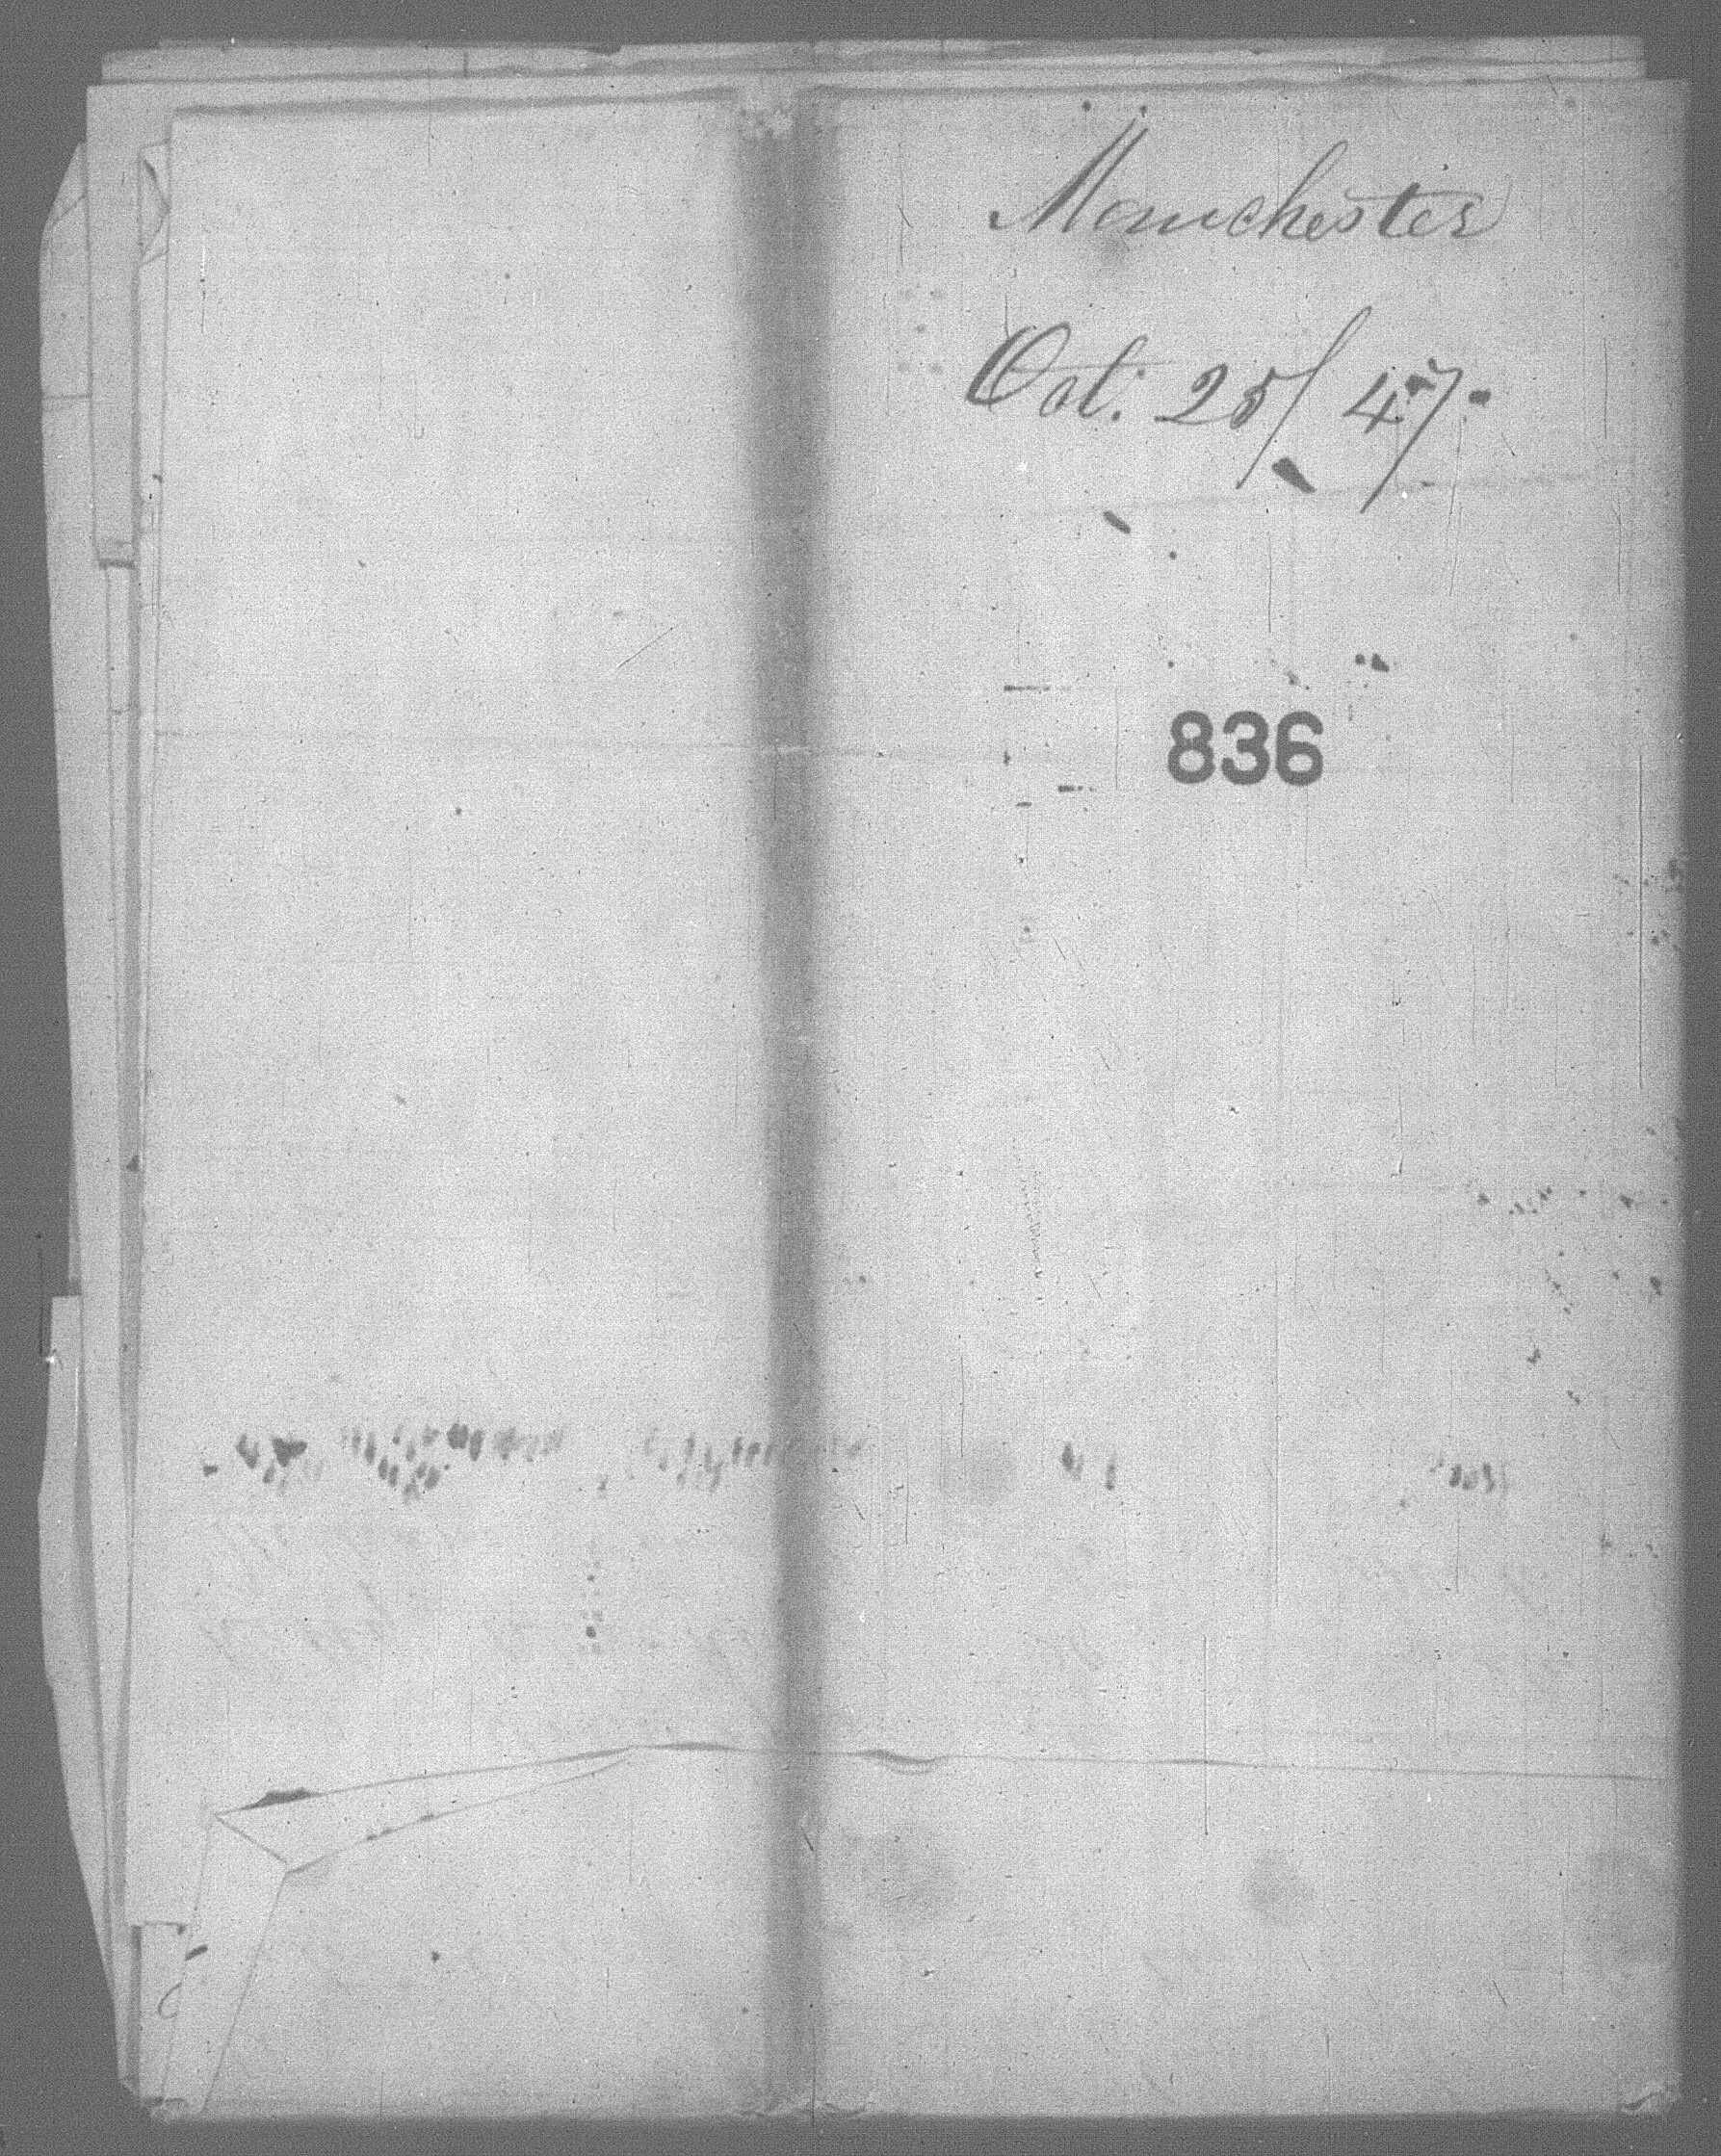 Manchester
Oct. 25/47.
836